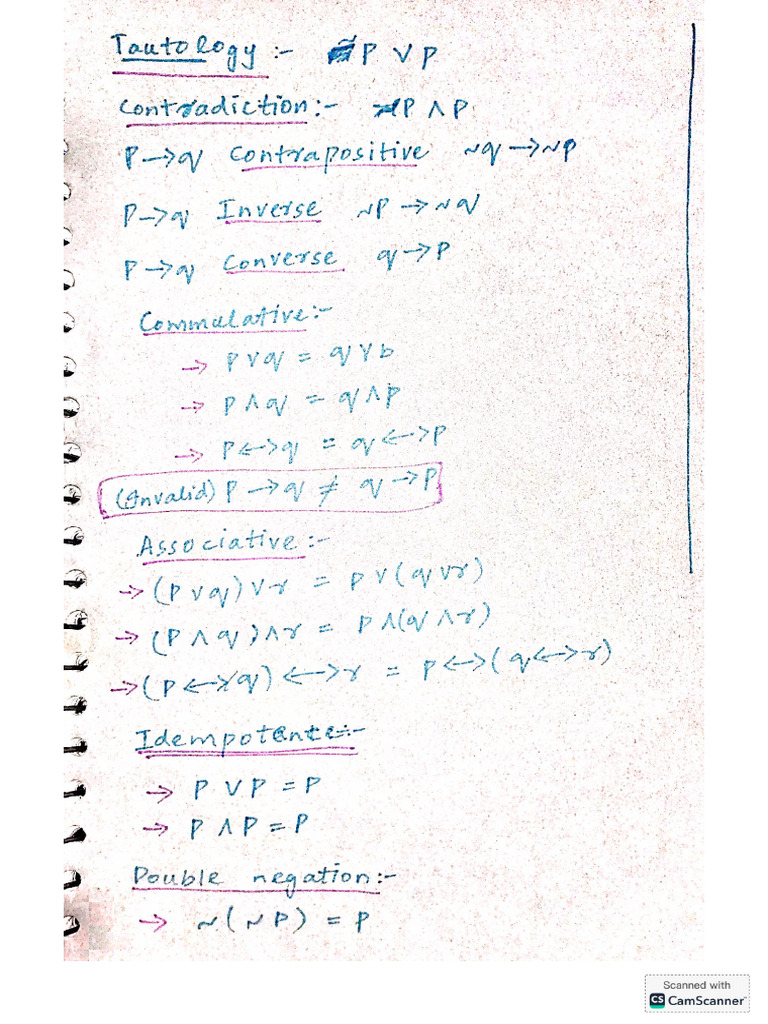 Tautology :- ~P ∨ P
Contradiction :- ~P ∧ P
P → q Contrapositive ~q → ~P
P → q Inverse ~P → ~q
P → q Converse q → P
Commulative :-
→ P ∨ q = q ∨ b
→ P ∧ q = q ∧ P
→ P ↔ q = q ↔ P
(Invalid) P → q ≠ q → P
Associative :-
→ (P ∨ q) ∨ r = P ∨ (q ∨ r)
→ (P ∧ q) ∧ r = P ∧ (q ∧ r)
→ (P ↔ q) ↔ r = P ↔ (q ↔ r)
Idempotente :-
→ P ∨ P = P
→ P ∧ P = P
Double negation :-
→ ~(~P) = P
Scanned with
CS CamScanner